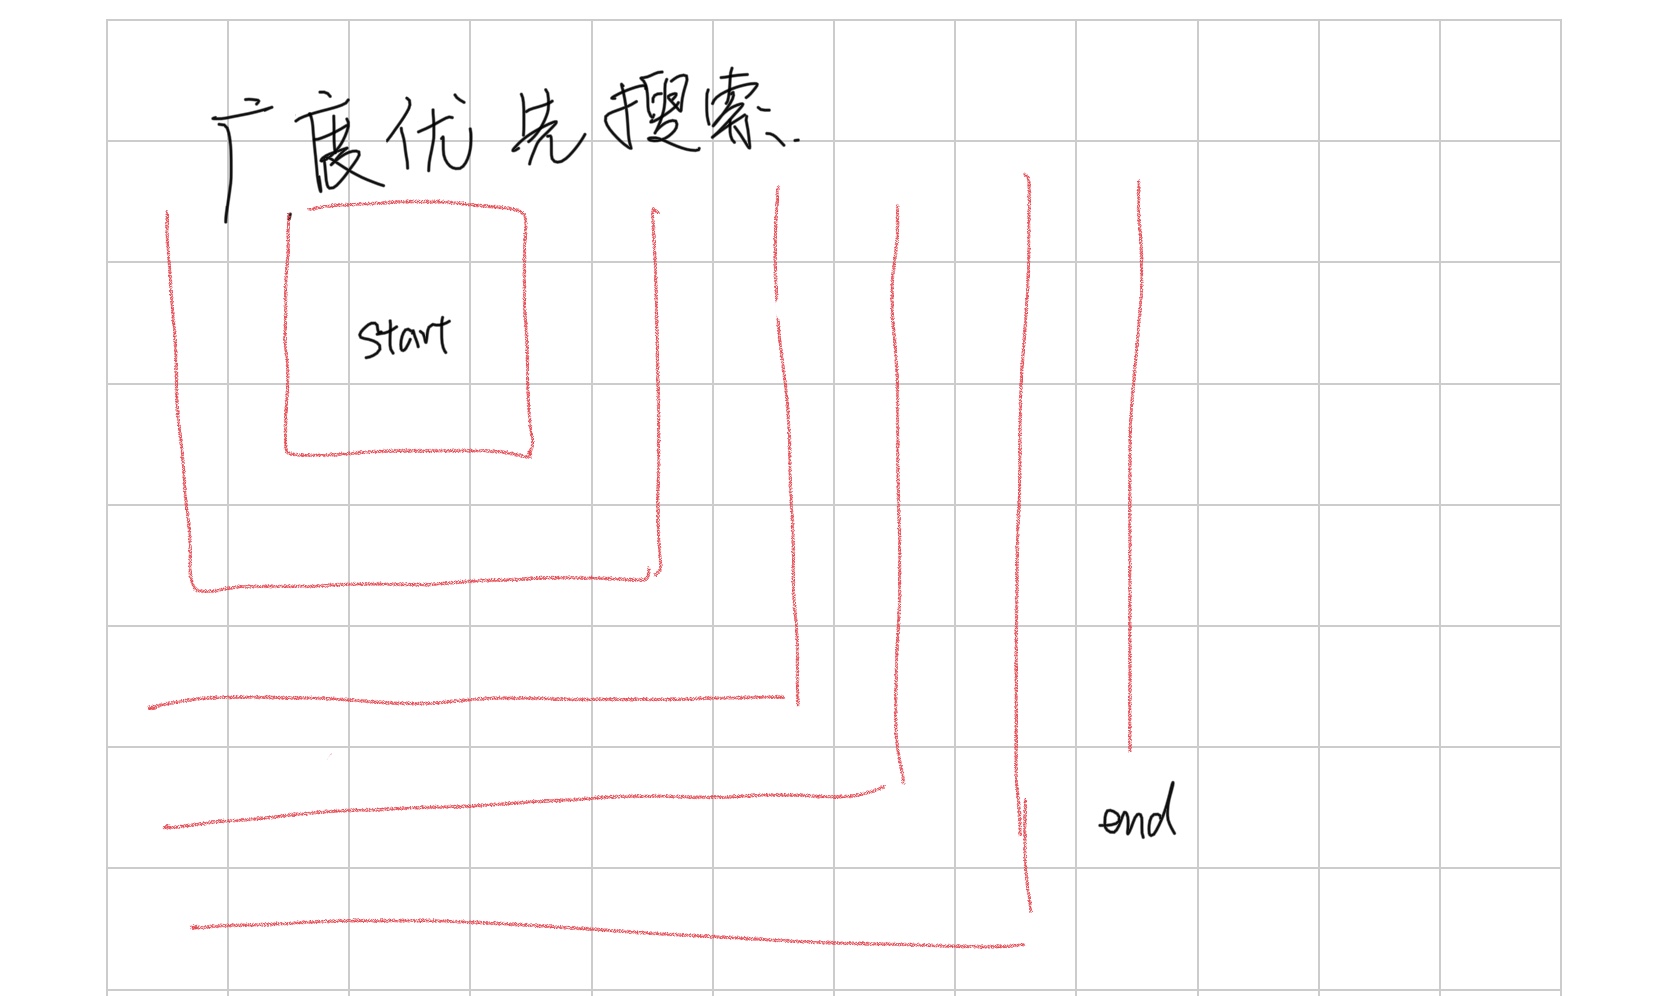 广度优先搜索.
start
end